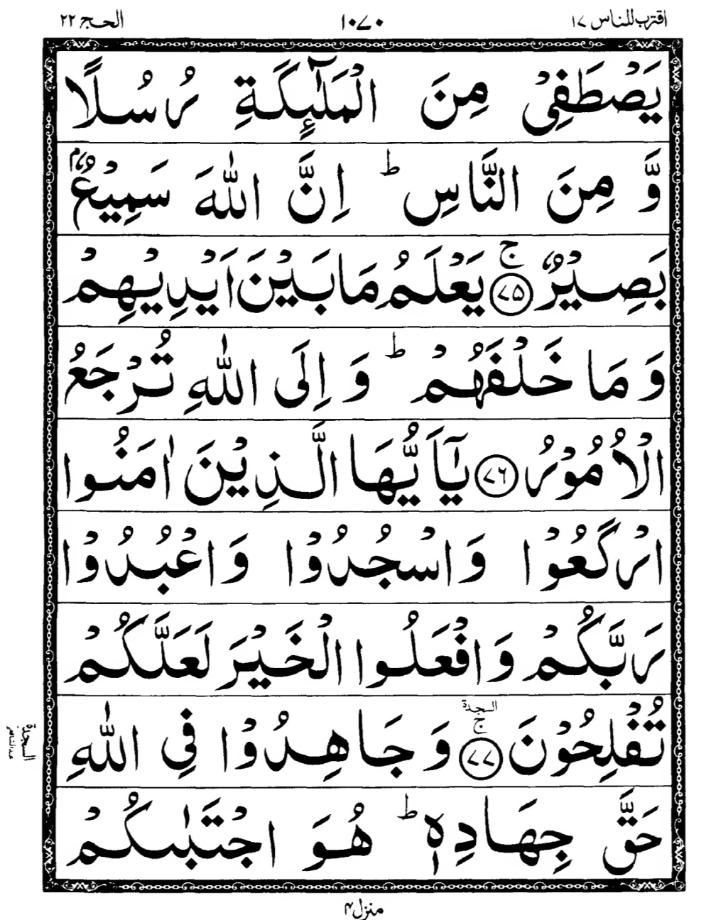 اقترب للناس ١٧ ١٠٧٠ الحج ٢٢
يَصْطَفِىْ مِنَ الْمَلٰٓئِكَةِ رُسُلًا
وَّ مِنَ النَّاسِ ؕ اِنَّ اللّٰهَ سَمِيْعٌۢ
بَصِيْرٌ ۚ ﴿٧٥﴾ يَعْلَمُ مَا بَيْنَ اَيْدِيْهِمْ
وَ مَا خَلْفَهُمْ ؕ وَ اِلَى اللّٰهِ تُرْجَعُ
الْاُمُوْرُ ﴿٧٦﴾ يٰٓاَيُّهَا الَّذِيْنَ اٰمَنُوا
ارْكَعُوْا وَ اسْجُدُوْا وَ اعْبُدُوْا
رَبَّكُمْ وَ افْعَلُوا الْخَيْرَ لَعَلَّكُمْ
السجدة
تُفْلِحُوْنَ ۚ ﴿٧٧﴾ وَ جَاهِدُوْا فِى اللّٰهِ
السجدة
حَقَّ جِهَادِهٖ ؕ هُوَ اجْتَبٰىكُمْ
منزل ۴